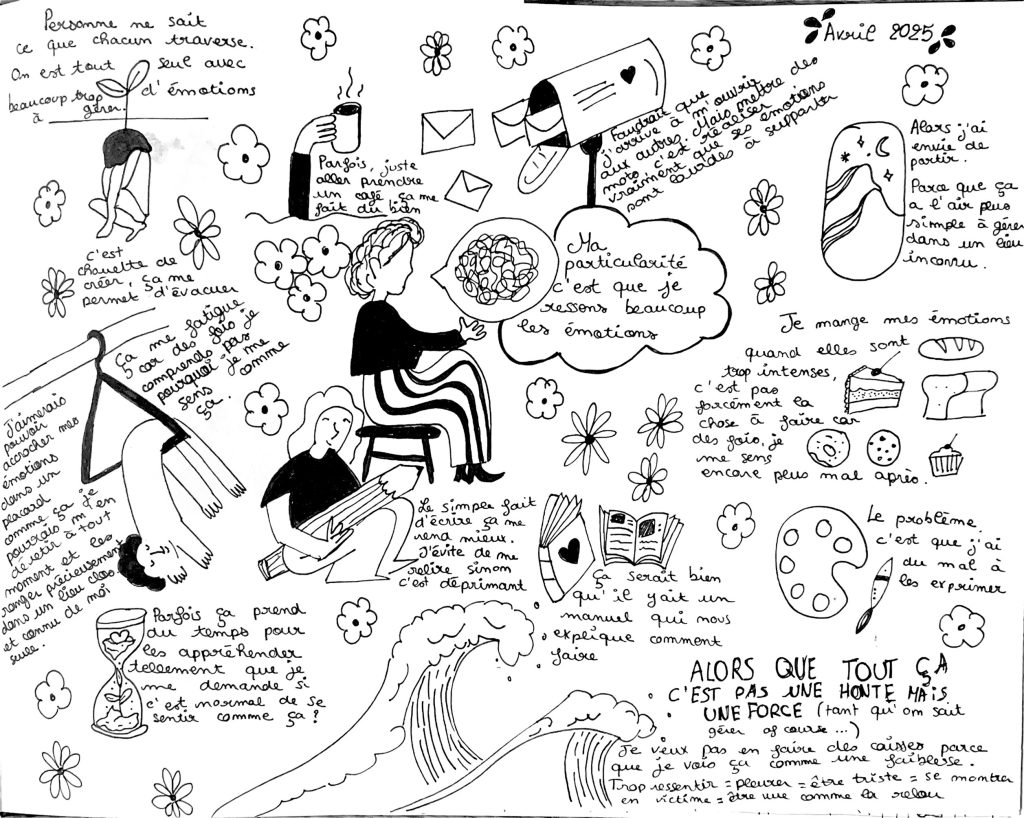 Personne ne sait
ce que chacun traverse.
On est tout seul avec
beaucoup trop d'émotions
à gérer.
Avril 2025
Parfois, juste
aller prendre
un café, ça me
fait du bien
Faudrait que
j'arrive à m'ouvrir
aux autres. Mais mettre des
mots c'est réaliser
vraiment que ses émotions
sont lourdes à supporter
Alors j'ai
envie de
partir.
Parce que ça
a l'air plus
simple à gérer
dans un lieu
inconnu.
c'est
chouette de
créer, ça me
permet d'évacuer
Ma
particularité
c'est que je
ressens beaucoup
les émotions
Ça me fatigue
car des fois je
comprends pas
pourquoi je me
sens comme
ça.
Je mange mes émotions
quand elles sont
trop intenses,
c'est pas
forcément la
chose à faire car
des fois, je
me sens
encore plus mal après.
J'aimerais
pouvoir
accrocher mes
émotions
dans un
placard
comme ça je
pourrais m'en
vêtir à tout
moment et les
ranger précieusement
dans un lieu clos
et connu de moi
seule.
Le simple fait
d'écrire ça me
rend mieux.
J'évite de me
relire sinon
c'est déprimant
Le problème,
c'est que j'ai
du mal à
les exprimer
Ça serait bien
qu'il y ait un
manuel qui nous
explique comment
faire
Parfois ça prend
du temps pour
les appréhender
tellement que je
me demande si
c'est normal de se
sentir comme ça ?
ALORS QUE TOUT ÇA
C'EST PAS UNE HONTE MAIS
UNE FORCE (tant qu'on sait
gérer of course ...)
Je veux pas en faire des caisses parce
que je vois ça comme une faiblesse.
Trop ressentir = pleurer = être triste = se montrer
en victime = être vue comme la relou